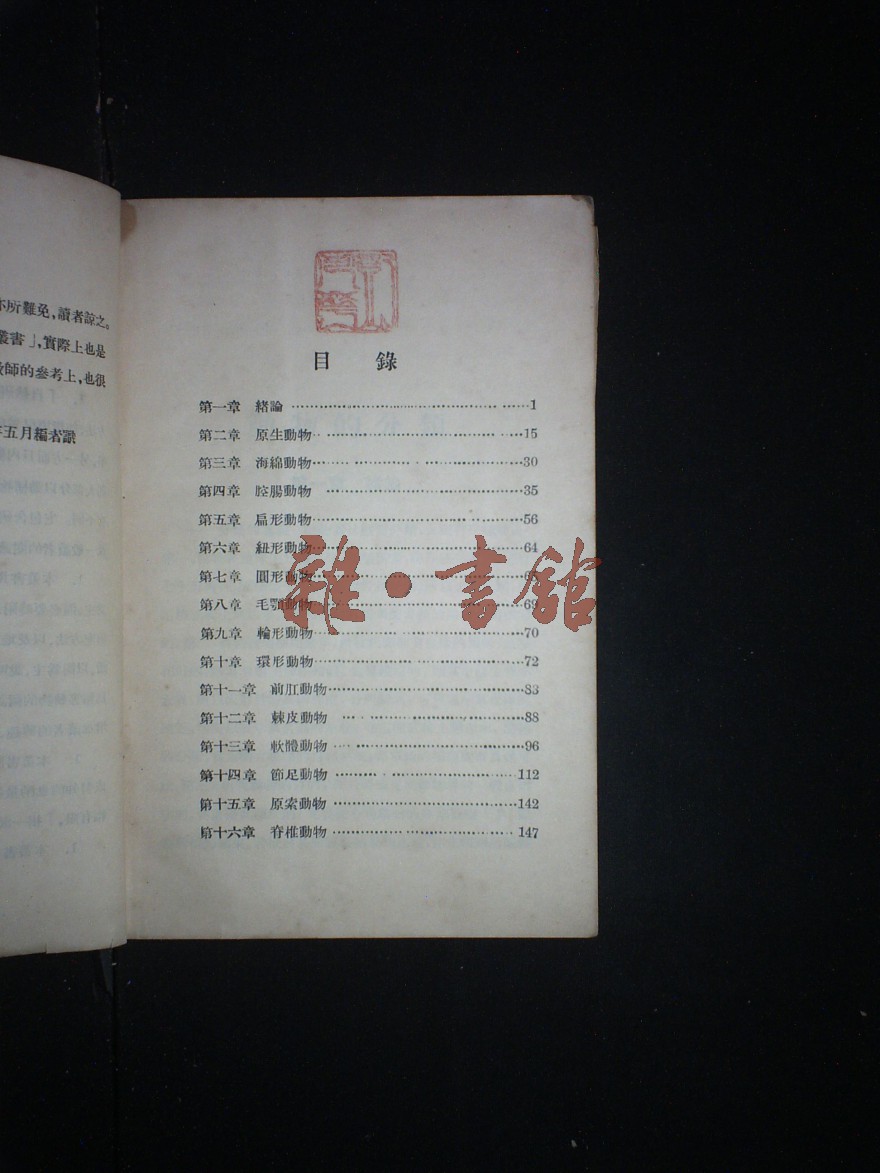 亦所難免,讀者諒之。
叢書」,實際上也是
教師的叄考上,也很
年五月編者識
目錄
第一章 緒論 1
第二章 原生動物 15
第三章 海綿動物 30
第四章 腔腸動物 35
第五章 扁形動物 56
第六章 紐形動物 64
第七章 圓形動物
第八章 毛顎動物 69
第九章 輪形動物 70
第十章 環形動物 72
第十一章 前肛動物 83
第十二章 棘皮動物 88
第十三章 軟體動物 96
第十四章 節足動物 112
第十五章 原索動物 142
第十六章 脊椎動物 147
雜·書館